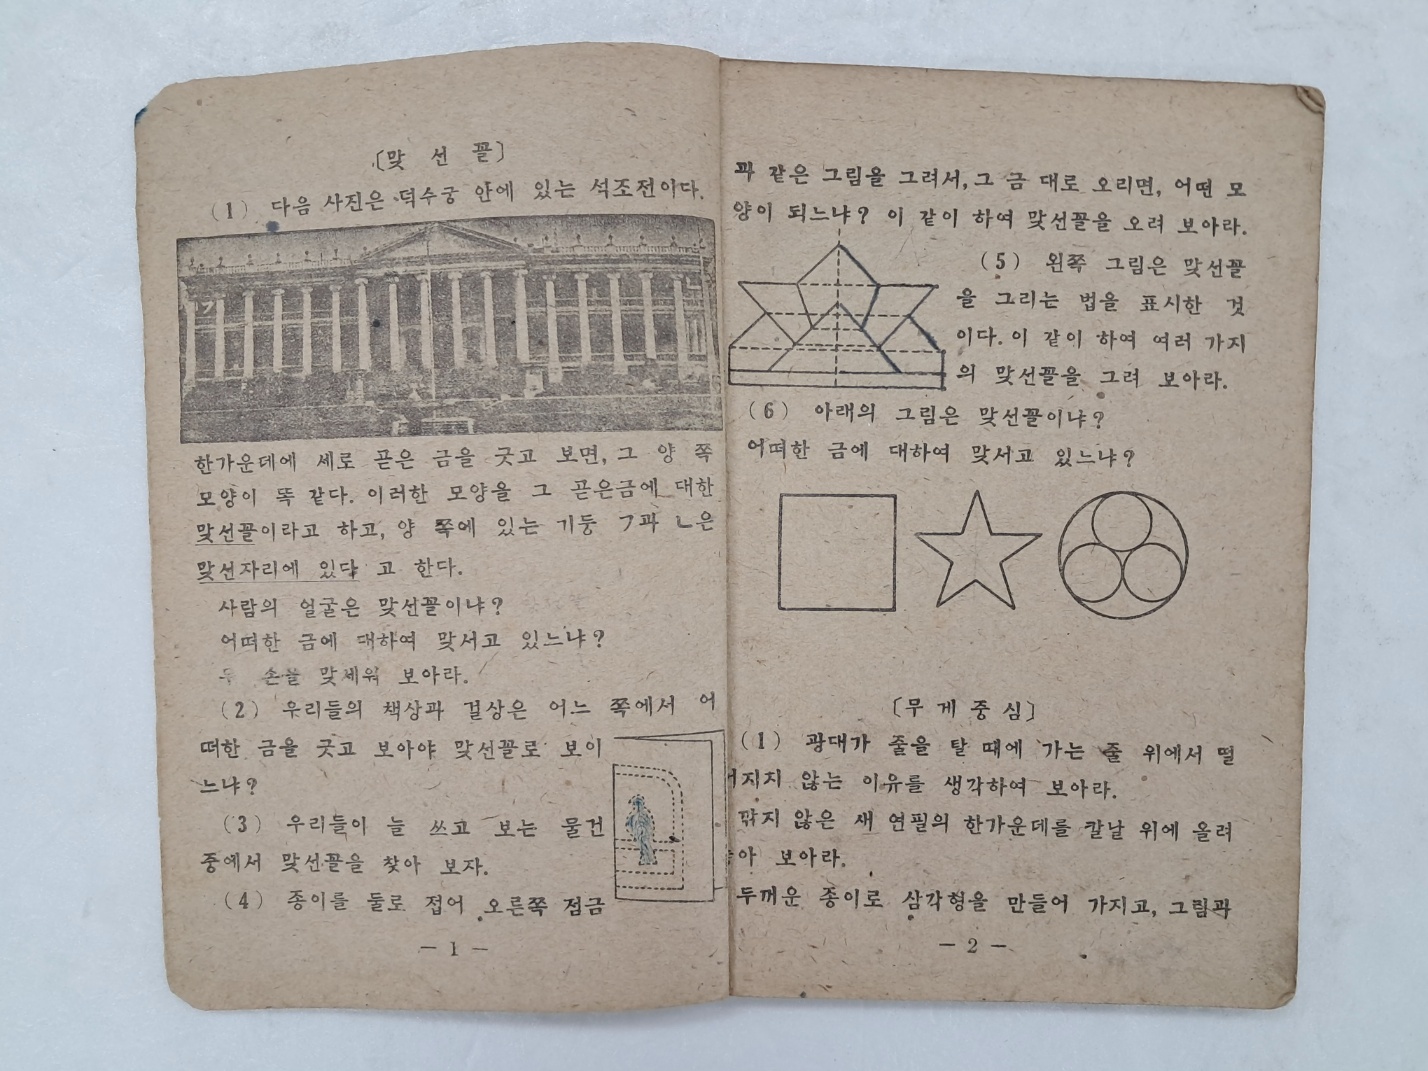 〔맞 선 꼴〕
(1) 다음 사진은 덕수궁 안에 있는 석조전이다.
ㄱ ㄴ
한가운데에 세로 곧은 금을 긋고 보면, 그 양 쪽
모양이 똑 같다. 이러한 모양을 그 곧은금에 대한
맞선꼴이라고 하고, 양 쪽에 있는 기둥 ㄱ과 ㄴ은
맞선자리에 있다 고 한다.
사람의 얼굴은 맞선꼴이냐?
어떠한 금에 대하여 맞서고 있느냐?
두 손을 맞세워 보아라.
(2) 우리들의 책상과 걸상은 어느 쪽에서 어
떠한 금을 긋고 보아야 맞선꼴로 보이
느냐?
(3) 우리들이 늘 쓰고 보는 물건
중에서 맞선꼴을 찾아 보자.
(4) 종이를 둘로 접어 오른쪽 점금
— 1 —
과 같은 그림을 그려서, 그 금 대로 오리면, 어떤 모
양이 되느냐? 이 같이 하여 맞선꼴을 오려 보아라.
(5) 왼쪽 그림은 맞선꼴
을 그리는 법을 표시한 것
이다. 이 같이 하여 여러 가지
의 맞선꼴을 그려 보아라.
(6) 아래의 그림은 맞선꼴이냐?
어떠한 금에 대하여 맞서고 있느냐?
〔무 게 중 심〕
(1) 광대가 줄을 탈 때에 가는 줄 위에서 떨
어지지 않는 이유를 생각하여 보아라.
깎지 않은 새 연필의 한가운데를 칼날 위에 올려
놓아 보아라.
두꺼운 종이로 삼각형을 만들어 가지고, 그림과
— 2 —